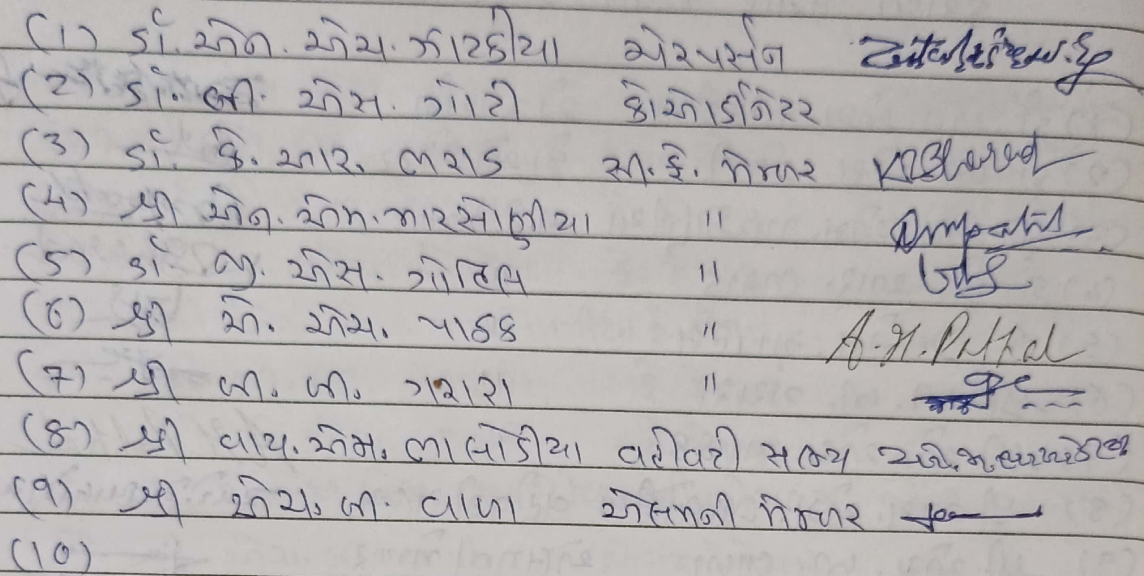 (1) ડૉ. એન. એચ. ઝાટકીયા ચેરપર્સન
(2) ડૉ. બી. એસ. ગોટી કો ઓર્ડીનેટર
(3) ડૉ. કે. આર. ભરાડ સ.કે. મેમ્બર KRBharad
(4) શ્રી એન. એમ. મારસોણીયા "
(5) ડૉ. જી. એસ. ગોહિલ "
(6) શ્રી એ. એચ. પાઠક " A.H. Pathak
(7) શ્રી જી. જી. ગરારા "
(8) શ્રી વાય. એમ. લાખોડીયા વહીવટી સભ્ય
(9) શ્રી એચ. જી. વાળા એલમની મેમ્બર
(10)